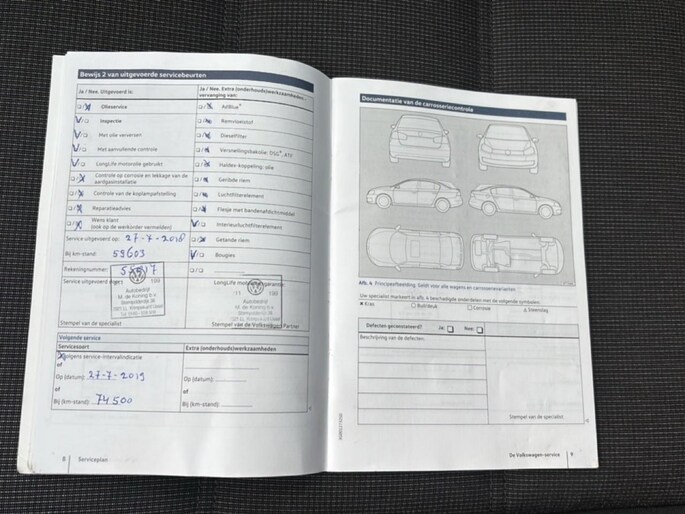 Bewijs 2 van uitgevoerde servicebeurten
Ja / Nee, Uitgevoerd is:
Ja / Nee, Extra (onderhouds)werkzaamheden, vervanging van:
Olieservice
AdBlue®
Inspectie
Remvloeistof
Met olie verversen
Dieselfilter
Met aanvullende controle
Versnellingsbakolie: DSG®, ATF
LongLife motorolie gebruikt
Haldex-koppeling: olie
Controle op corrosie en lekkage van de aardgasinstallatie
Geribde riem
Controle van de koplampafstelling
Luchtfilterelement
Reparatieadvies
Flesje met bandenafdichtmiddel
Wens klant
(ook op de werkorder vermelden)
Interieurluchtfilterelement
Service uitgevoerd op: 27-7-2018
Getande riem
Bij km-stand: 59603
Bougies
Rekeningnummer:
Service uitgevoerd door:
LongLife mobiliteitsgarantie:
Autobedrijf
M. de Koning b.v.
Autobedrijf
M. de Koning b.v.
Stempel van de specialist
Stempel van de Volkswagen Partner
Volgende service
Servicesoort
Extra (onderhouds)werkzaamheden
Volgens service-intervalindicatie
of
Op (datum): 27-7-2019
Op (datum):
of
of
Bij (km-stand): 74500
Bij (km-stand):
8 Serviceplan
Documentatie van de carrosseriecontrole
Afb. 4 Principeafbeelding. Geldt voor alle wagens en carrosserievarianten
Uw specialist markeert in afb. 4 beschadigde onderdelen met de volgende symbolen:
Kras
Buil/deuk
Corrosie
Steenslag
Defecten geconstateerd?
Ja:
Nee:
Beschrijving van de defecten:
Stempel van de specialist
De Volkswagen-service 9